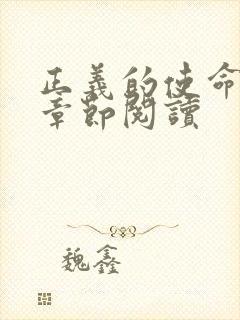 正義的使命
章節閱讀
魏鑫